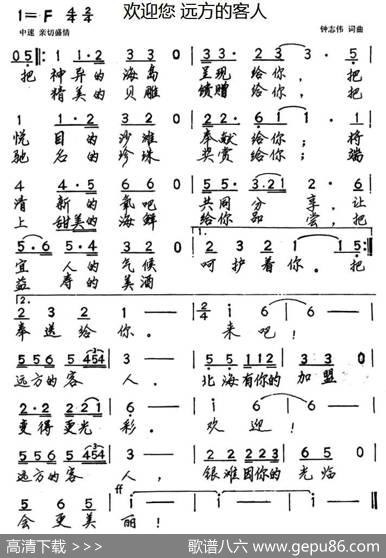 欢迎您 远方的客人
1=F 4/4 2/4
中速 亲切盛情
钟志伟 词曲
0 5 : 1 1·2 3 2 0 33·3 2 3 3·5
把 神异的 海岛 呈现 给你， 把
精美的 贝雕 馈赠 给你，
1 1·2 3 2 0 2·2 6 1 1·1
悦目的 沙滩 奉献 给你； 将
驰名的 珍珠 奖赏 给你； 端
4 4·5 6 6 0 55·3·21 2·6
清新的 氧吧 共同 分享，让
上甜美的 海鲜 给你 品尝，把
5·6 5·4 3 2 0 2 3 2 1 1 5
1.
宜人的 气候 呵护着你。把
益寿的 美酒
2.
2 3 2 1 — 2/4 i 6 6 —
奉送给你。 来吧！
556 5 454 3 — 5·5 112 3 3·3
远方的客 人。 北海有你的 加盟
2·2 221 6 — i 6 6 —
更得更光 彩。 欢迎！
556 5 454 3 — 5·5 112 3 3·3
远方的客 人， 银滩因你的 光临
ff
5 6 5 i — i — i 0
会更美丽！
高清下载 >>>
歌谱八六 www.gepu86.com